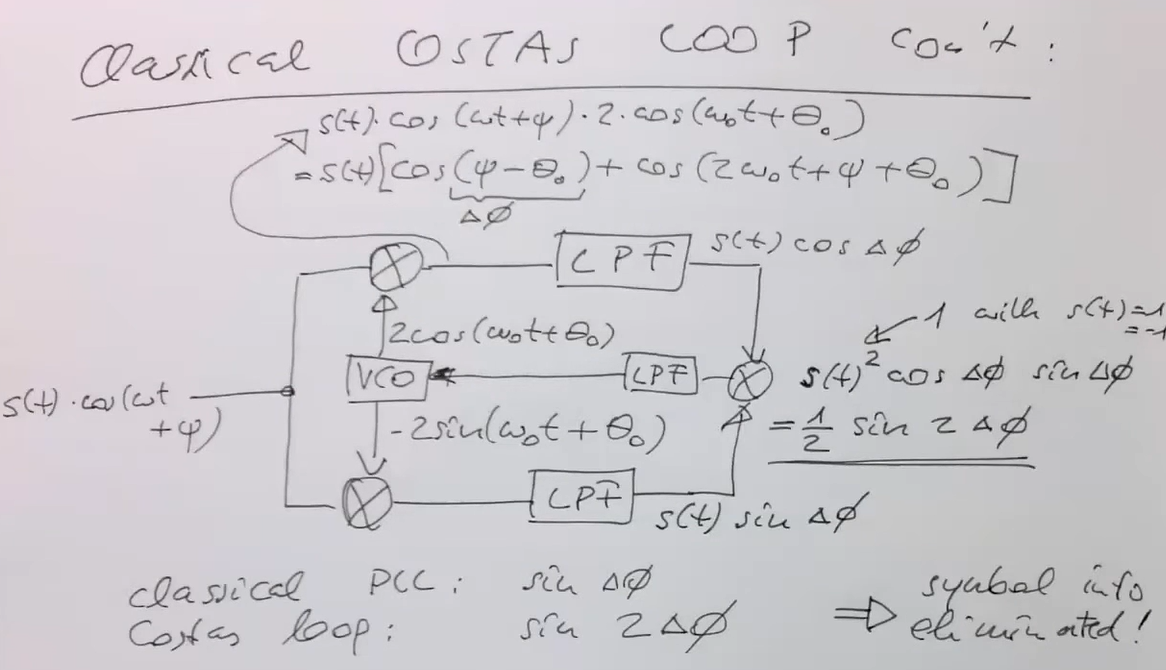 Classical COSTAS LOOP con't:
s(t)·cos(ωt+φ)·2·cos(ω₀t+Θ₀)
=s(t)[cos(φ-Θ₀)+cos(2ω₀t+φ+Θ₀)]
Δϕ
LPF
s(t)cosΔϕ
2cos(ω₀t+Θ₀)
1 with s(t)=1
=-1
VCO
LPF
s(t)² cos Δϕ sin Δϕ
s(t)·cos(ωt
+φ)
-2sin(ω₀t+Θ₀)
=½ sin 2Δϕ
LPF
s(t) sin Δϕ
classical PLL: sin Δϕ
Costas loop: sin 2Δϕ
⇒ symbol info
eliminated!